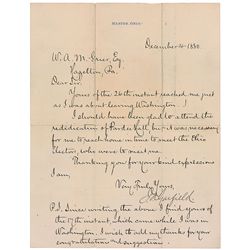 December 4, 1880.
W. A. M. Grier, Esq.
Hazelton, Pa.
Dear Sir:
Yours of the 26th instant reached me just
as I was about leaving Washington. I
should have been glad to attend the
rededication of Pardee Hall, but it was necessary
for me to reach home in time to meet the Ohio
Electors, who were to meet me.
Thanking you for your kind expressions
I am,
Very Truly Yours,
J A Garfield
P.S. Since writing the above I find yours of
the 17th instant, which came while I was in
Washington. I wish to add my thanks for your
congratulations and suggestions.